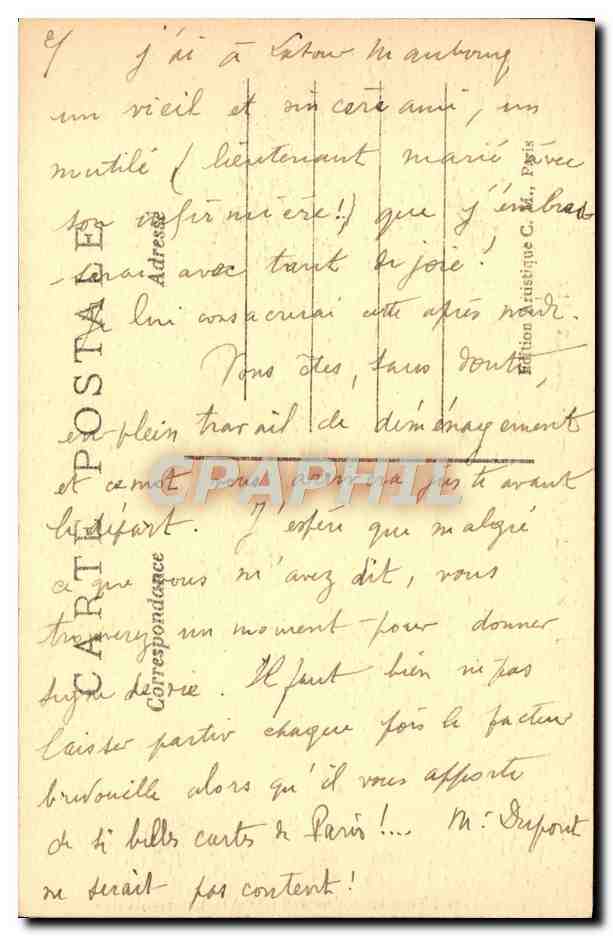 2/ j'ai à Latour Maubourg
un vieil et sincère ami, un
mutilé (lieutenant marié avec
son infirmière!) que j'embras
-serai avec tant de joie!
Je lui consacrerai cette après midi.
Vous êtes, sans doute,
en plein travail de déménagement
et ce mot vous arrivera juste avant
le départ. J'espère que malgré
ce que vous m'avez dit, vous
trouverez un moment pour donner
signe de vie. Il faut bien ne pas
laisser partir chaque fois le facteur
bredouille alors qu'il vous apporte
de si belles cartes de Paris!... Mr Dupont
ne serait pas content!
CARTE POSTALE
Correspondance
Adresse
Edition Artistique C. M., Paris
CPAPHIL